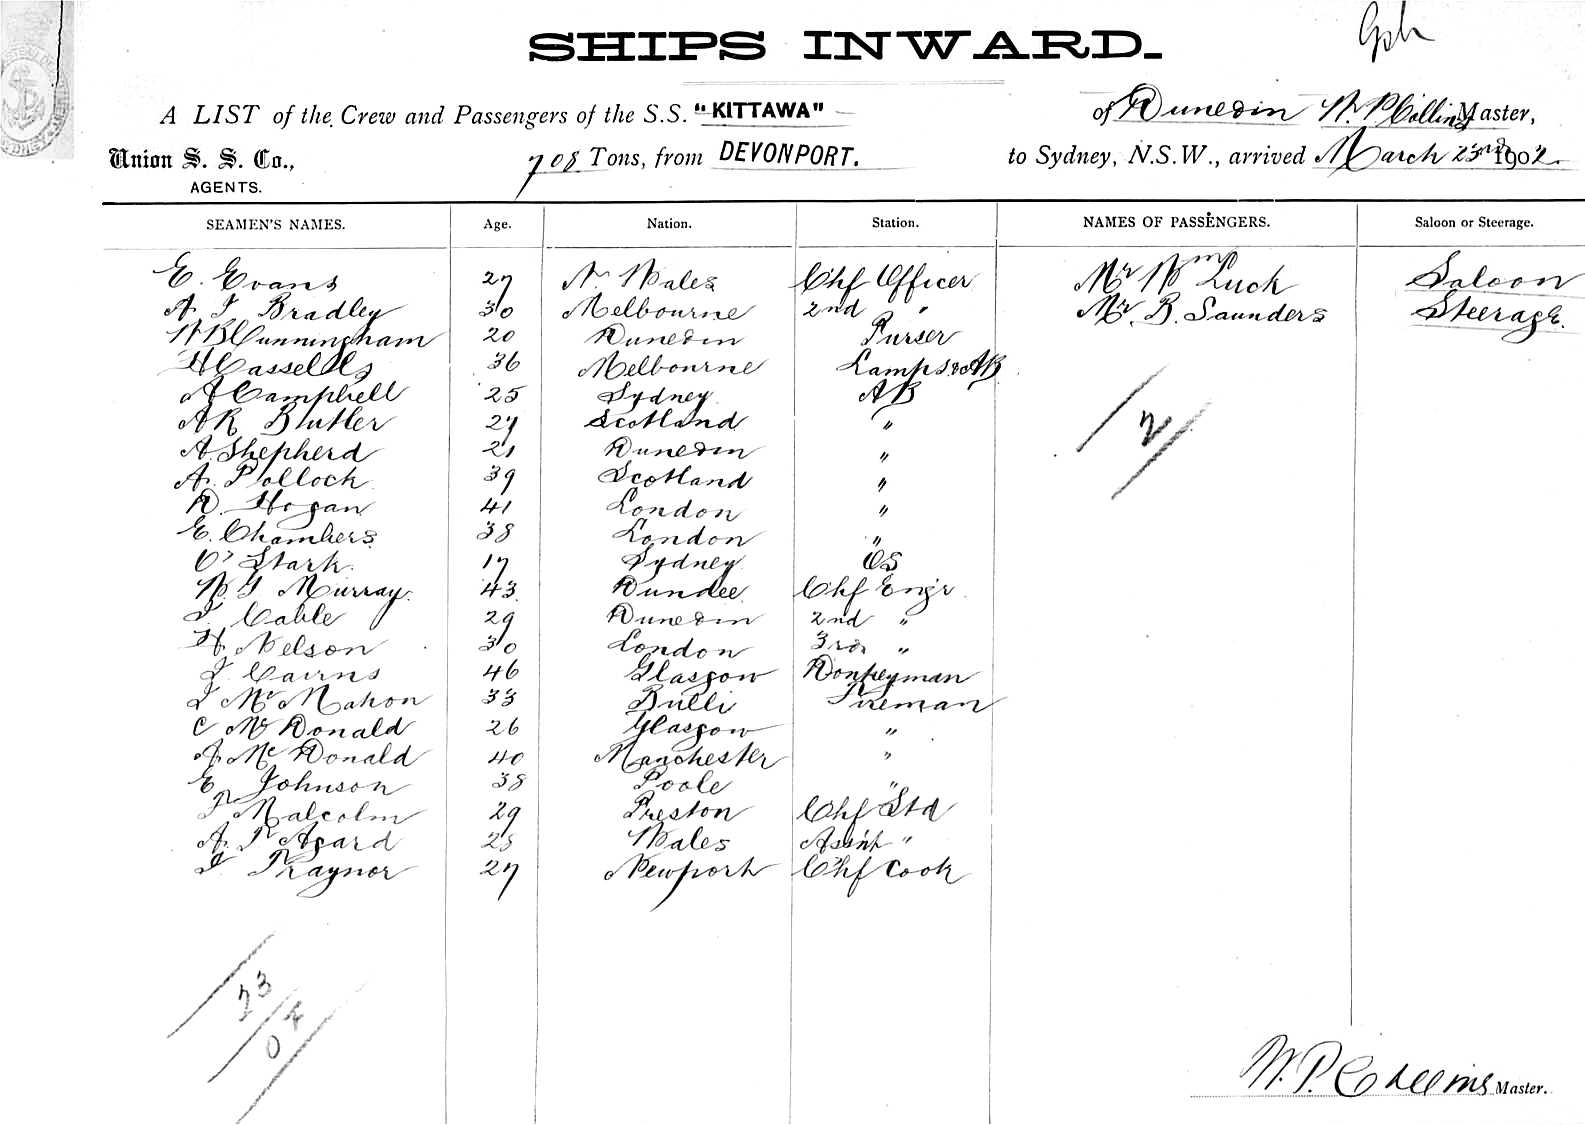 SHIPS INWARD.
A LIST of the Crew and Passengers of the S.S. "KITTAWA" of Dunedin W. P. Collins Master,
Union S. S. Co., AGENTS. 708 Tons, from DEVONPORT. to Sydney, N.S.W., arrived March 23rd 1902.
SEAMEN'S NAMES. Age. Nation. Station. NAMES OF PASSENGERS. Saloon or Steerage.
E. Evans 27 N. Wales Chf Officer Mr Wm Luck Saloon
A. J Bradley 30 Melbourne 2nd " Mr. B. Saunders Steerage.
W B Cunningham 20 Dunedin Purser
H Cassells 36 Melbourne Lamps & AB
A Campbell 25 Sydney AB
A R Butler 27 Scotland "
A. Shepherd 21 Dunedin "
A. Pollock 39 Scotland "
D. Hogan 41 London "
E. Chambers 38 London "
O' Stark. 17 Sydney OS
W. G Murray. 43 Dundee Chf Engr
J. Cable 29 Dunedin 2nd "
H. Nelson 30 London 3rd "
J. Cairns 46 Glasgow Donkeyman
J McMahon 33 Bulli Fireman
C McDonald 26 Glasgow "
A. McDonald 40 Manchester "
E Johnson 38 Poole "
Malcolm 29 Preston Chf Std
A. P Agard 28 Wales Assnt "
J. Traynor 27 Newport Chf Cook
2
23
0
W. P. Collins Master.